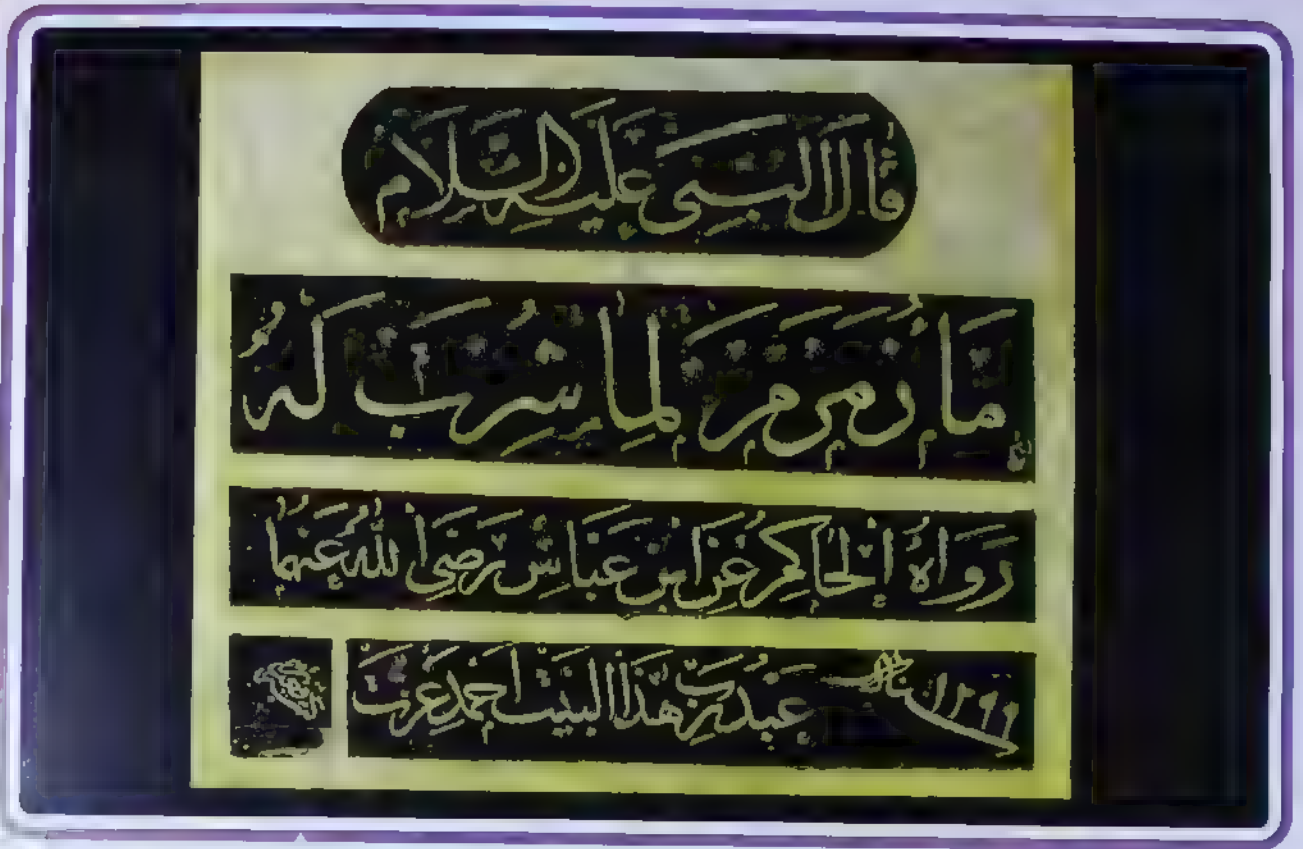 قال النبي عليه السلام
ماء زمزم لما شرب له
رواه الحاكم عن ابن عباس رضي الله عنهما
١٢٩٩ عبد رب هذا البيت احمد عزت